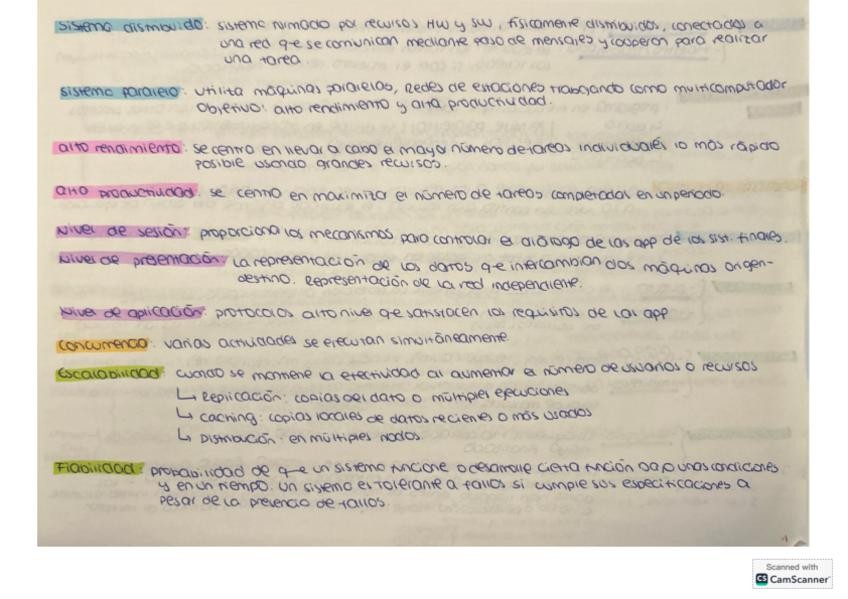 Sistema distribuido: sistema formado por recursos HW y SW, físicamente distribuidos, conectados a
una red que se comunican mediante paso de mensajes y cooperan para realizar
una tarea
Sistema paralelo: utiliza máquinas paralelas, Redes de estaciones trabajando como multicomputador
Objetivo: alto rendimiento y alta productividad.
alto rendimiento: se centra en llevar a cabo el mayor número de tareas individuales lo más rápido
posible usando grandes recursos.
alta productividad: se centra en maximizar el número de tareas completadas en un periodo.
Nivel de sesión: proporciona los mecanismos para controlar el diálogo de las app de los sist. finales.
Nivel de presentación: la representación de los datos que intercambian dos máquinas origen-
destino. Representación de la red independiente.
Nivel de aplicación: protocolos alto nivel que satisfacen los requisitos de las app
Concurrencia: varias actividades se ejecutan simultáneamente.
Escalabilidad: cuando se mantiene la efectividad al aumentar el número de usuarios o recursos
↳ Replicación: copias del dato o múltiples ejecuciones
↳ Caching: copias locales de datos recientes o más usados
↳ Distribución: en múltiples nodos.
Fiabilidad: probabilidad de que un sistema funcione o desarrolle cierta función bajo unas condiciones
y en un tiempo. Un sistema es tolerante a fallos si cumple sus especificaciones a
pesar de la presencia de fallos.
1
Scanned with
CS CamScanner